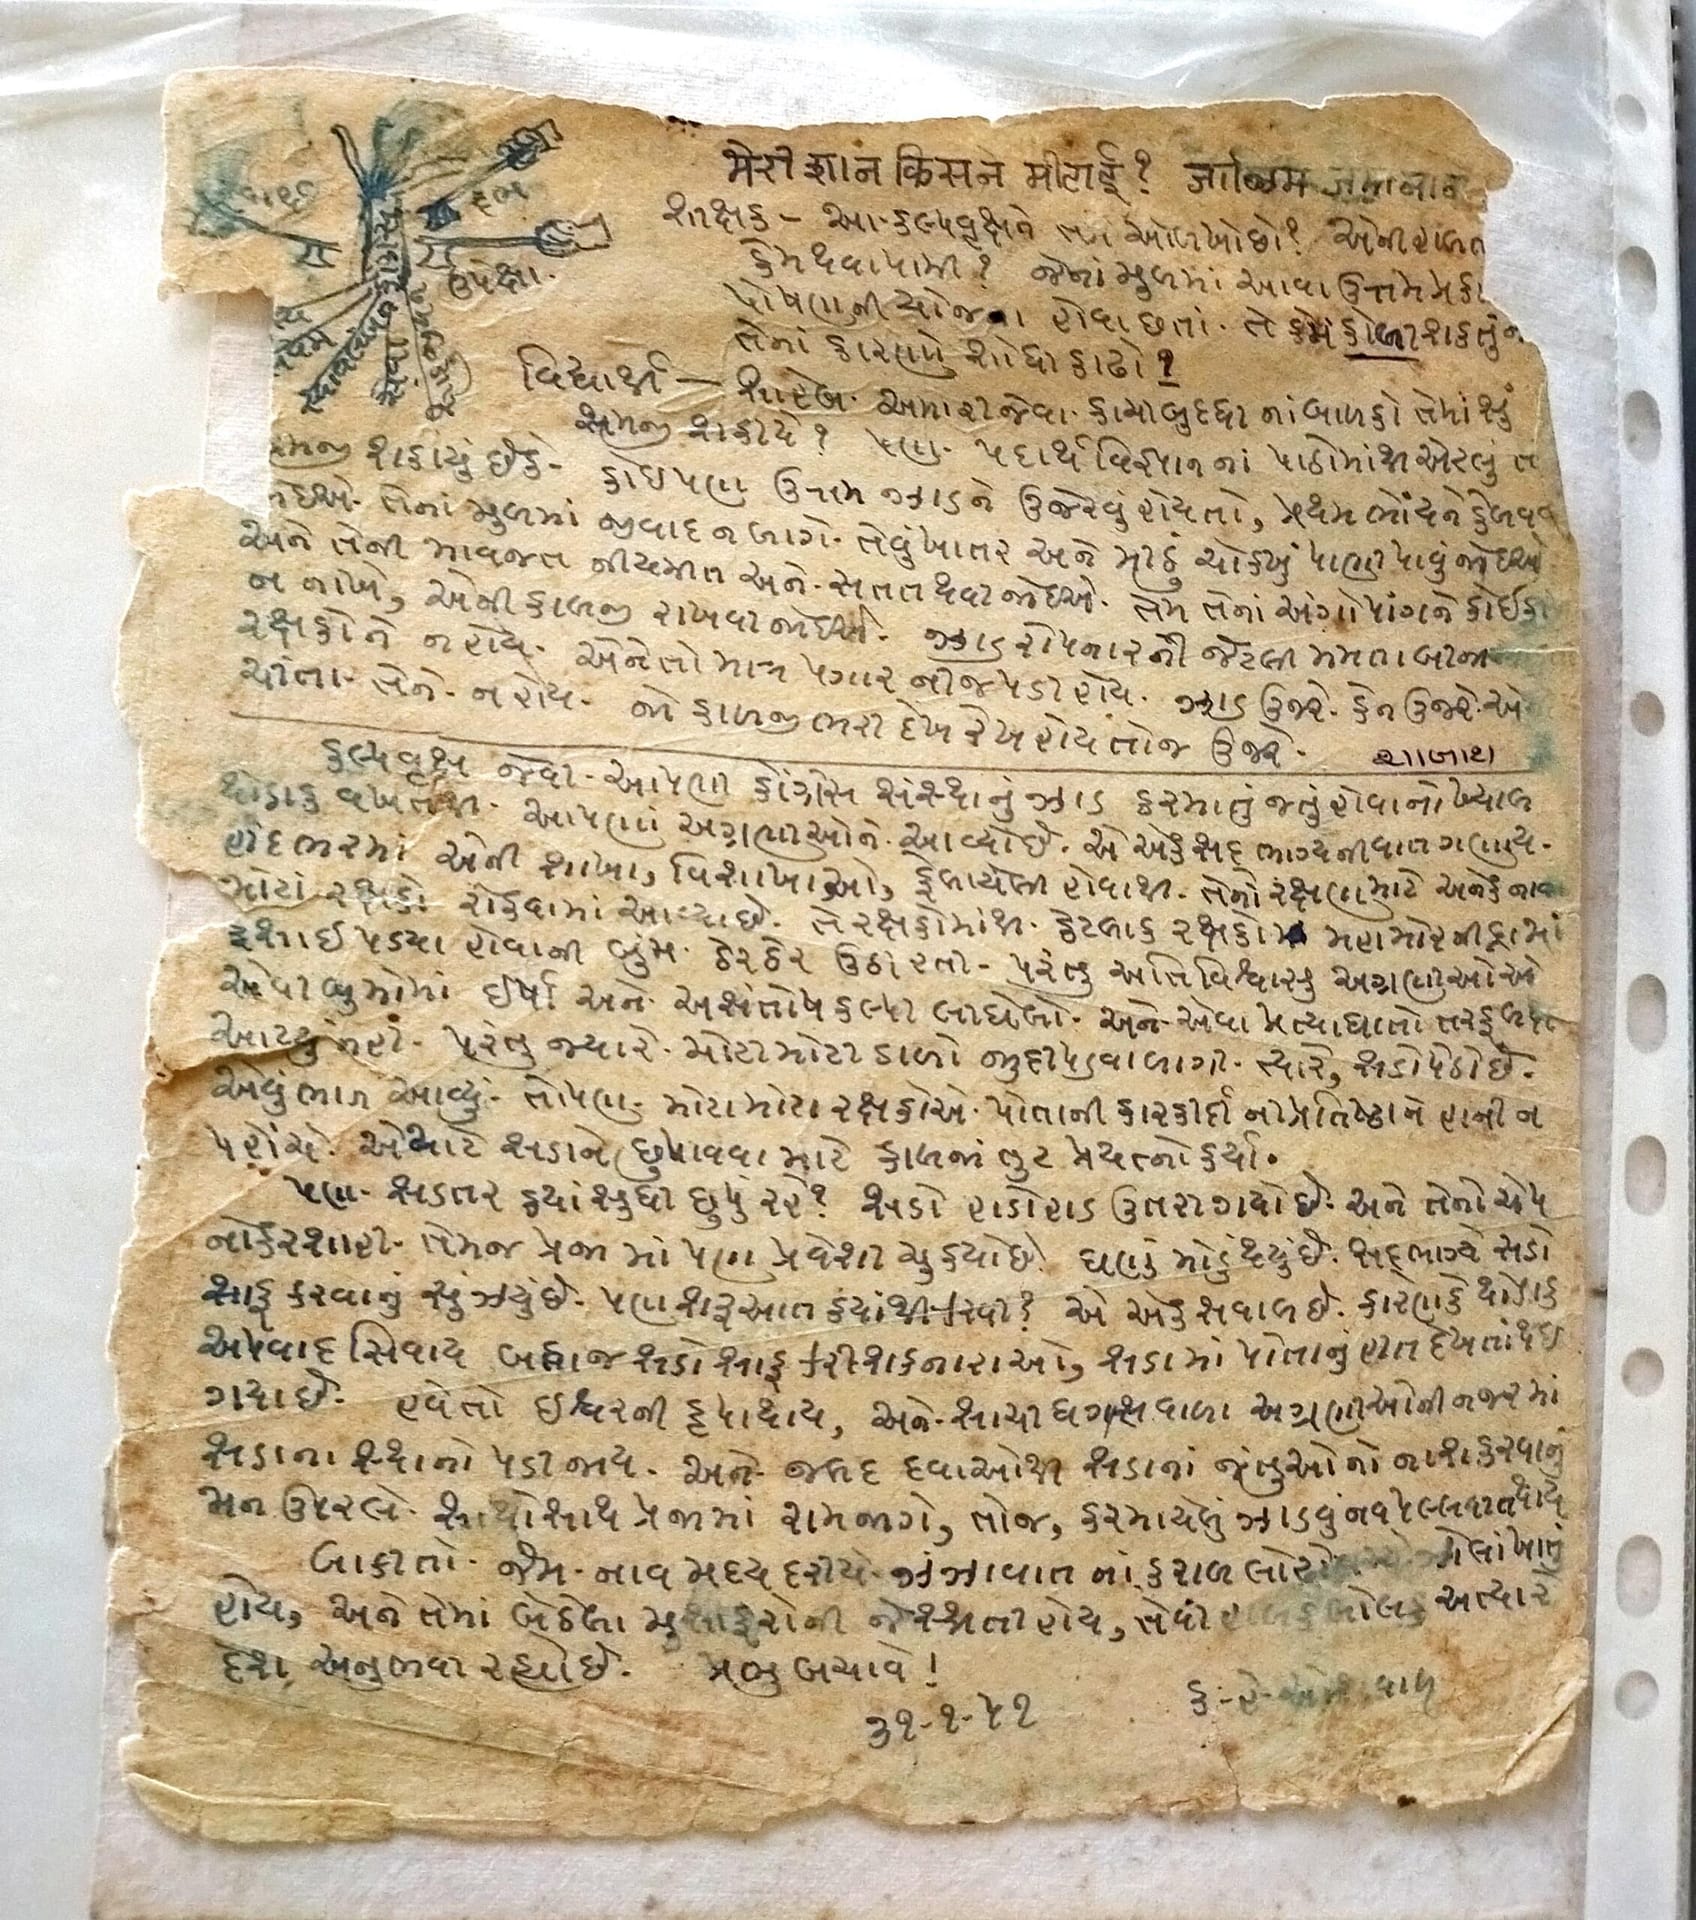 मेरी शान किसने मीटाई? जालिम जमानाने
શીક્ષક - આ કલ્પવૃક્ષને તમે ઓળખોછો? એની હાલત
કેમ થવા પામી? જેનાં મુળમાં આવા ઉત્તમ
પોષણની યોજના હોવા છતાં. તે કેમ ફોળી શકતું
તેનાં કારણો શોધી કાઢો?
ઉપેક્ષા.
દંભ
સ્વાવલંબન
સેવા
કોંગ્રેસ
વિદ્યાર્થી - સાહેબ. અમારી જેવા. કાચી બુદ્ધી નાં બાળકો તેમાં શું
સમજી શકીયે? પણ. પદાર્થ વિજ્ઞાન નાં પાઠોમાંથી એટલું
શકાયું છેકે- કોઇપણ ઉત્તમ ઝાડને ઉજેરવું હોયતો, પ્રથમ ભોંયને કેળવવી
જોઇએ. તેનાં મુળમાં જીવાદ ન લાગે. તેવું ખાતર અને મીઠું ચોક્ખું પાણી પાવું જોઇએ.
અને તેની માવજત નીયમીત અને. સતત થવી જોઇએ. તેમ તેનાં અંગોપાંગને કોઈ
ન નાખે, એની કાળજી રાખવી જોઇએ. ઝાડ રોપનારની જેટલી મમતા બીજા
રક્ષકોને ન હોય. એનેતો માત્ર પગાર નીજ પડી હોય. ઝાડ ઉજરે. કેન ઉજરે. એ
ચીંતા- તેને- ન હોય. જો કાળજી ભરી દેખ રેખ હોય તોજ ઉજરે. શાબાશ
કલ્પવૃક્ષ જેવી- આપણી કોંગ્રેસ સંસ્થાનું ઝાડ કરમાતું જતું હોવાનો ખ્યાલ
થોડાક વખતથી. આપણાં અગ્રણીઓને. આવ્યો છે. એ એક સદ્ ભાગ્યની વાત ગણાય.
હીંદભરમાં એની શાખા, વિશાખાઓ, ફેલાયેલી હોવાથી. તેનાં રક્ષણ માટે અનેક નાના
મોટાં રક્ષકો રોકવામાં આવ્યા છે. તે રક્ષકોમાંથી. કેટલાક રક્ષકો મહામોહનીદ્રામાં
ફસાઈ પડ્યા હોવાની બુંમ. ઠેરઠેર ઉઠી હતી- પરંતુ અતિ વિશ્વાસુ અગ્રણીઓએ
એવી બુમોમાં ઈર્ષા અને. અસંતોષ કલ્પી લીધેલો. અને- એવા પ્રત્યાઘાતો તરફ લક્ષ
આપ્યું નહીં. પરંતુ જ્યારે. મોટી મોટી ડાળો જુદી પડવા લાગી. ત્યારે, સડો પેઠો છે.
એવું ભાન આવ્યું.- તોપણ- મોટા મોટા રક્ષકોએ. પોતાની કારકીર્દી ની પ્રતિષ્ઠાને હાની ન
પહોંચે. એ માટે સડાને છુપાવવા માટે કાળજાં તુટ પ્રયત્નો કર્યા.
પણ- સડતર ક્યાં સુધી છુપું રહે? સડો હાડોહાડ ઉતરી ગયો છે. અને તેનો ચેપ
નોકરશાહી- તેમજ પ્રજા માં પણ પ્રવેશી ચુક્યો છે. ઘણું મોડું થયું છે. સદ્ ભાગ્યે સડો
સાફ કરવાનું સુંઝ્યું છે. પણ શરૂઆત ક્યાંથી કરવી? એ એક સવાલ છે. કારણકે થોડાક
અપવાદ સિવાય બધાજ સડો સાફ કરી શકનારાઓ, સડામાં પોતાનું હીત દેખતાં થઇ
ગયા છે. હવેતો ઇશ્વરની કૃપા થાય, અને- સાચી ધગશ વાળા અગ્રણીઓની નજરમાં
સડાના સ્થાનો પડી જાય. અને- જલદ દવાઓથી સડાનાં જંતુઓનો નાશ કરવાનું
મન ઉપરલે. સાથોસાથ પ્રજામાં રામ જાગે, તોજ, કરમાયેલું ઝાડવું નવપલ્લવીત થાય
બાકીતો. જેમ- નાવ મદ્ય દરીયે. ઝંઝાવાત નાં કરાળ લોઢો વચ્ચે ઝોલાં ખાતું
હોય, અને તેમાં બેઠેલા મુસાફરોની જે સ્થિતી હોય, તેવી હાલકડોલક અત્યારે
દેશ અનુભવી રહ્યો છે. પ્રભુ બચાવે!
૩૧-૧-૫૧